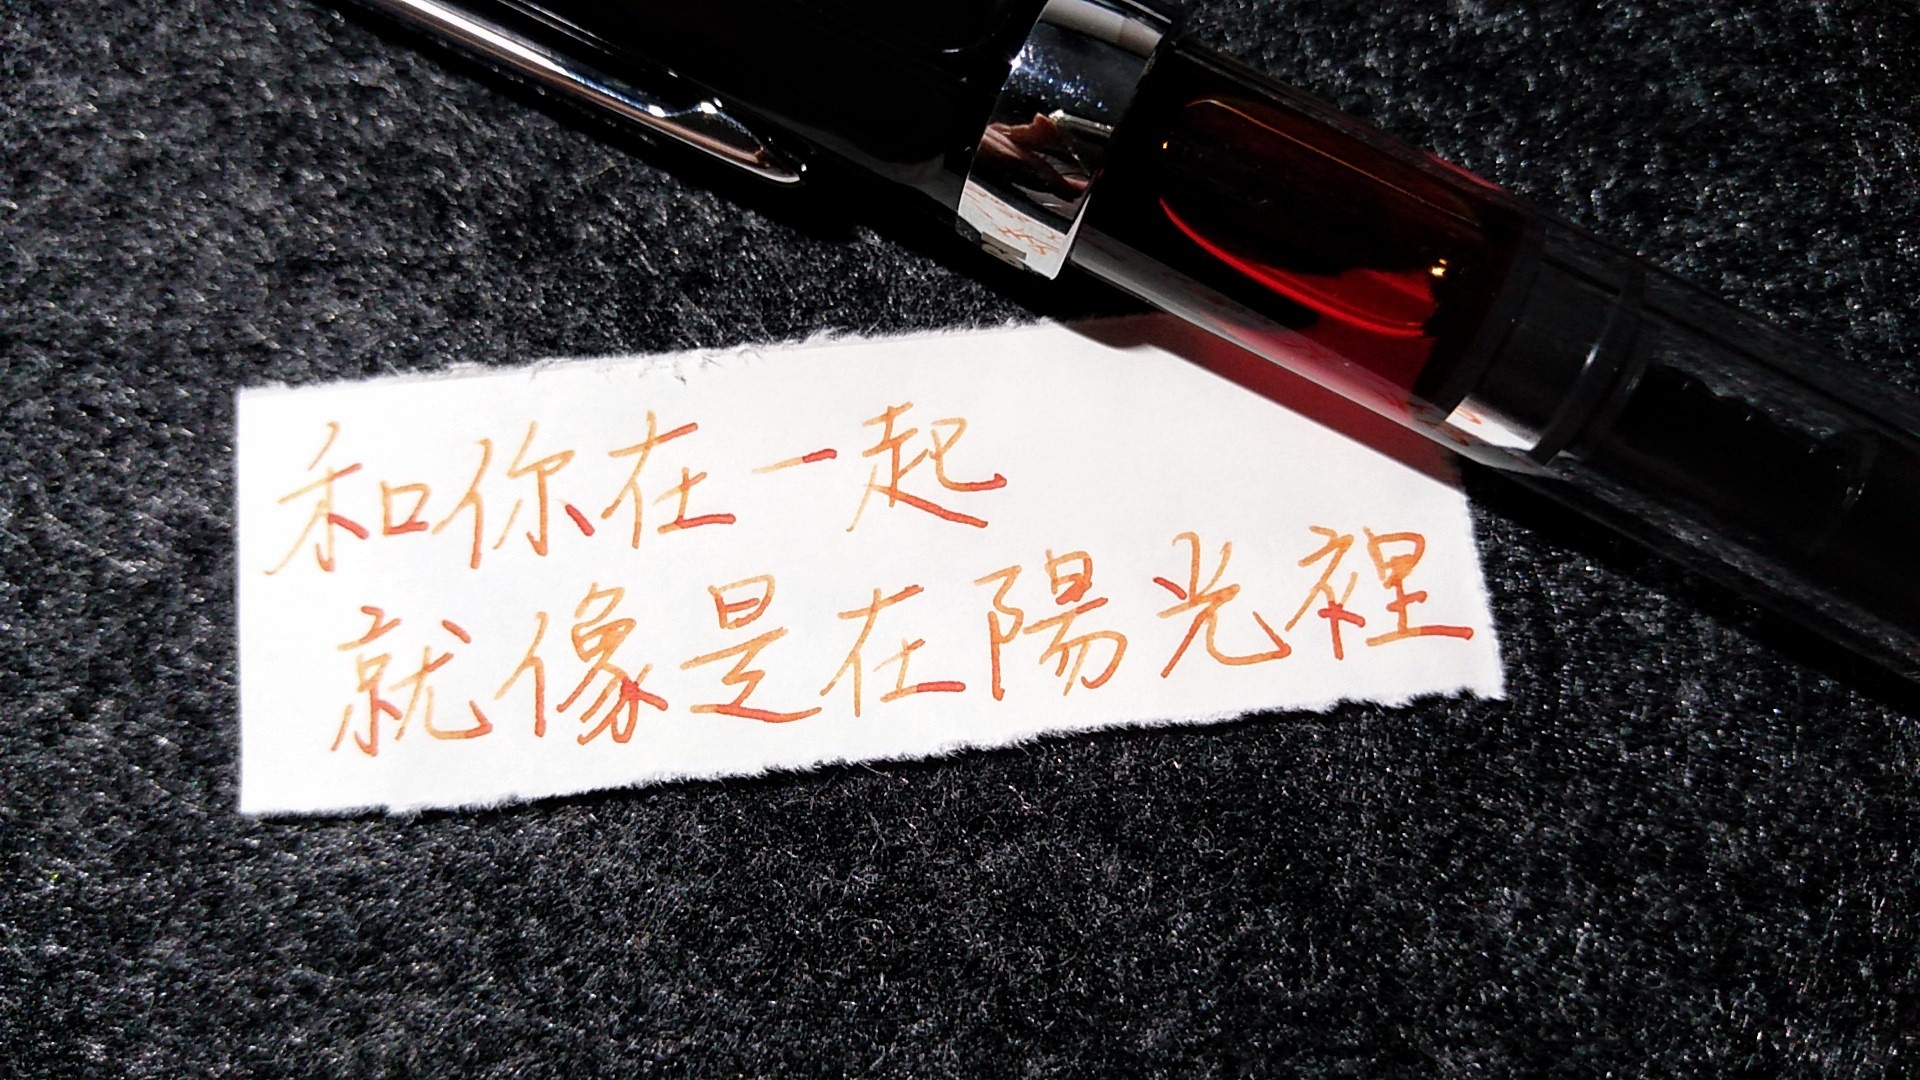 和你在一起
就像是在陽光裡